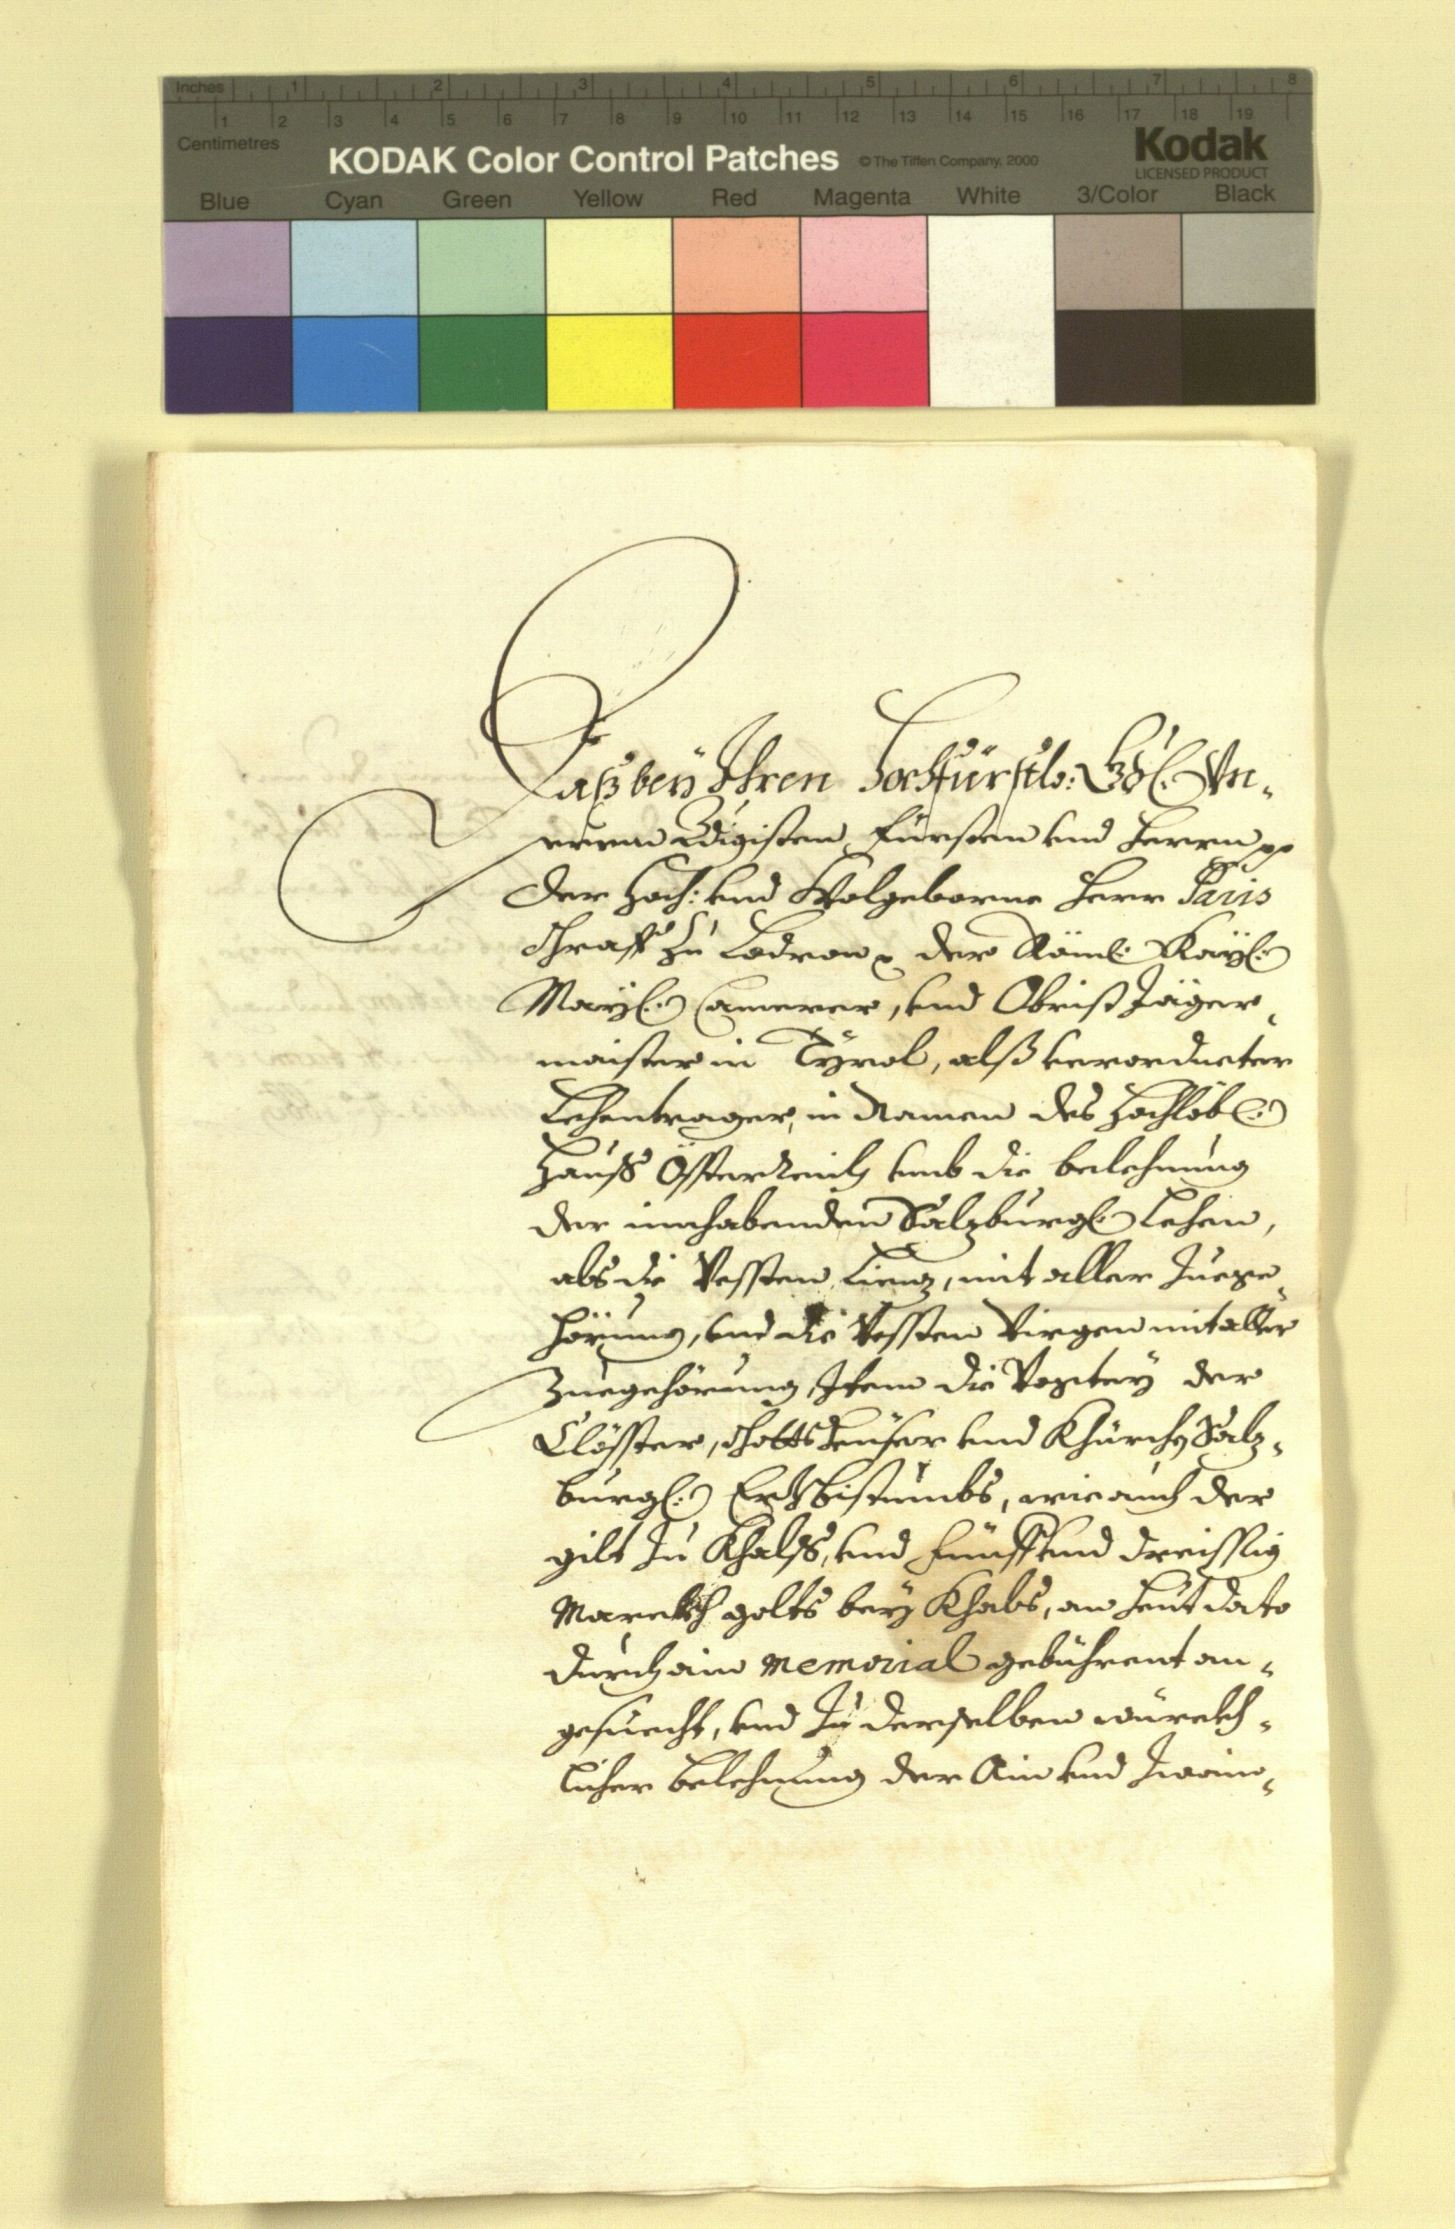 Inches 1 2 3 4 5 6 7 8
1 2 3 4 5 6 7 8 9 10 11 12 13 14 15 16 17 18 19
Centimetres
KODAK Color Control Patches © The Tiffen Company, 2000
Kodak
LICENSED PRODUCT
Blue Cyan Green Yellow Red Magenta White 3/Color Black
Daß beÿ Ihren Hochfürstl: Gd(. Vn-
serem Gdigisten Fürsten vnd Herrn
Der Hoch: vnd Wolgeborne Herr Paris
Graff zu Lodron der Röm: Kaÿ(.
Maÿ(. Camerer, vnd Obrist Jäger-
maister in Tÿrol, alß verordneter
Lehentrager, in Namen des Hochlöb(.
Hauß Össterreich vmb die belehnung
der innhabenden Salzburg(. Lehen,
als die Vessten Lienz, mit aller Zuege-
hörung, vnd die Vessten Virgen mit aller
Zuegehörung, Item die Vogteÿ der
Clösster, Gottsheüser vnd Khürch Salz-
burg(. Erzbistumbs, wie auch der
gilt zu Khalß, vnd Fünff vnd dreissig
Marckh golts beÿ Khals, an heut dato
durch ain Memorial gebührent an-
gesuecht, vnd zu derselben würckh-
licher belehnung der Ain vnd Zwain-